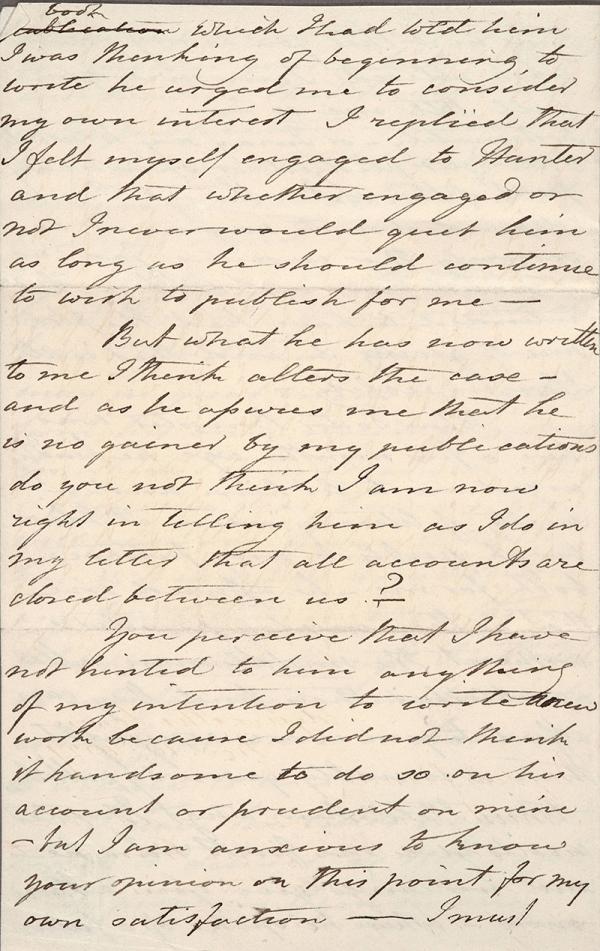 book
publication which I had told him
I was thinking of beginning to
write he urged me to consider
my own interest I replied that
I felt myself engaged to Hunter
and that whether engaged or
not I never would quit him
as long as he should continue
to wish to publish for me —
But what he has now written
to me I think alters the case –
and as he assures me that he
is no gainer by my publications
do you not think I am now
right in telling him as I do in
my letter that all accounts are
closed between us ?
You perceive that I have
not hinted to him anything
of my intention to write a new
work because I did not think
it handsome to do so on his
account or prudent on mine
– but I am anxious to know
your opinion on this point for my
own satisfaction — I must